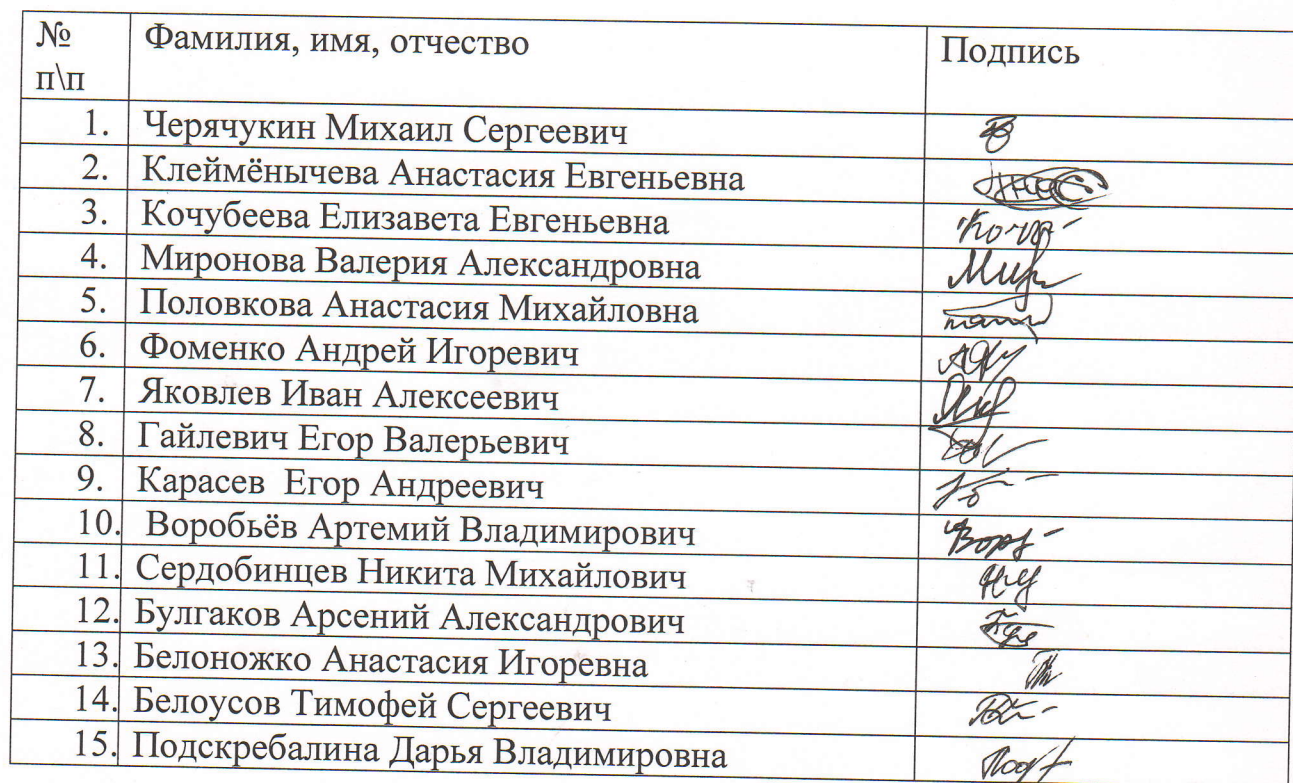 № п\п Фамилия, имя, отчество Подпись
1. Черячукин Михаил Сергеевич
2. Клеймёнычева Анастасия Евгеньевна
3. Кочубеева Елизавета Евгеньевна
4. Миронова Валерия Александровна
5. Половкова Анастасия Михайловна
6. Фоменко Андрей Игоревич
7. Яковлев Иван Алексеевич
8. Гайлевич Егор Валерьевич
9. Карасев Егор Андреевич
10. Воробьёв Артемий Владимирович
11. Сердобинцев Никита Михайлович
12. Булгаков Арсений Александрович
13. Белоножко Анастасия Игоревна
14. Белоусов Тимофей Сергеевич
15. Подскребалина Дарья Владимировна